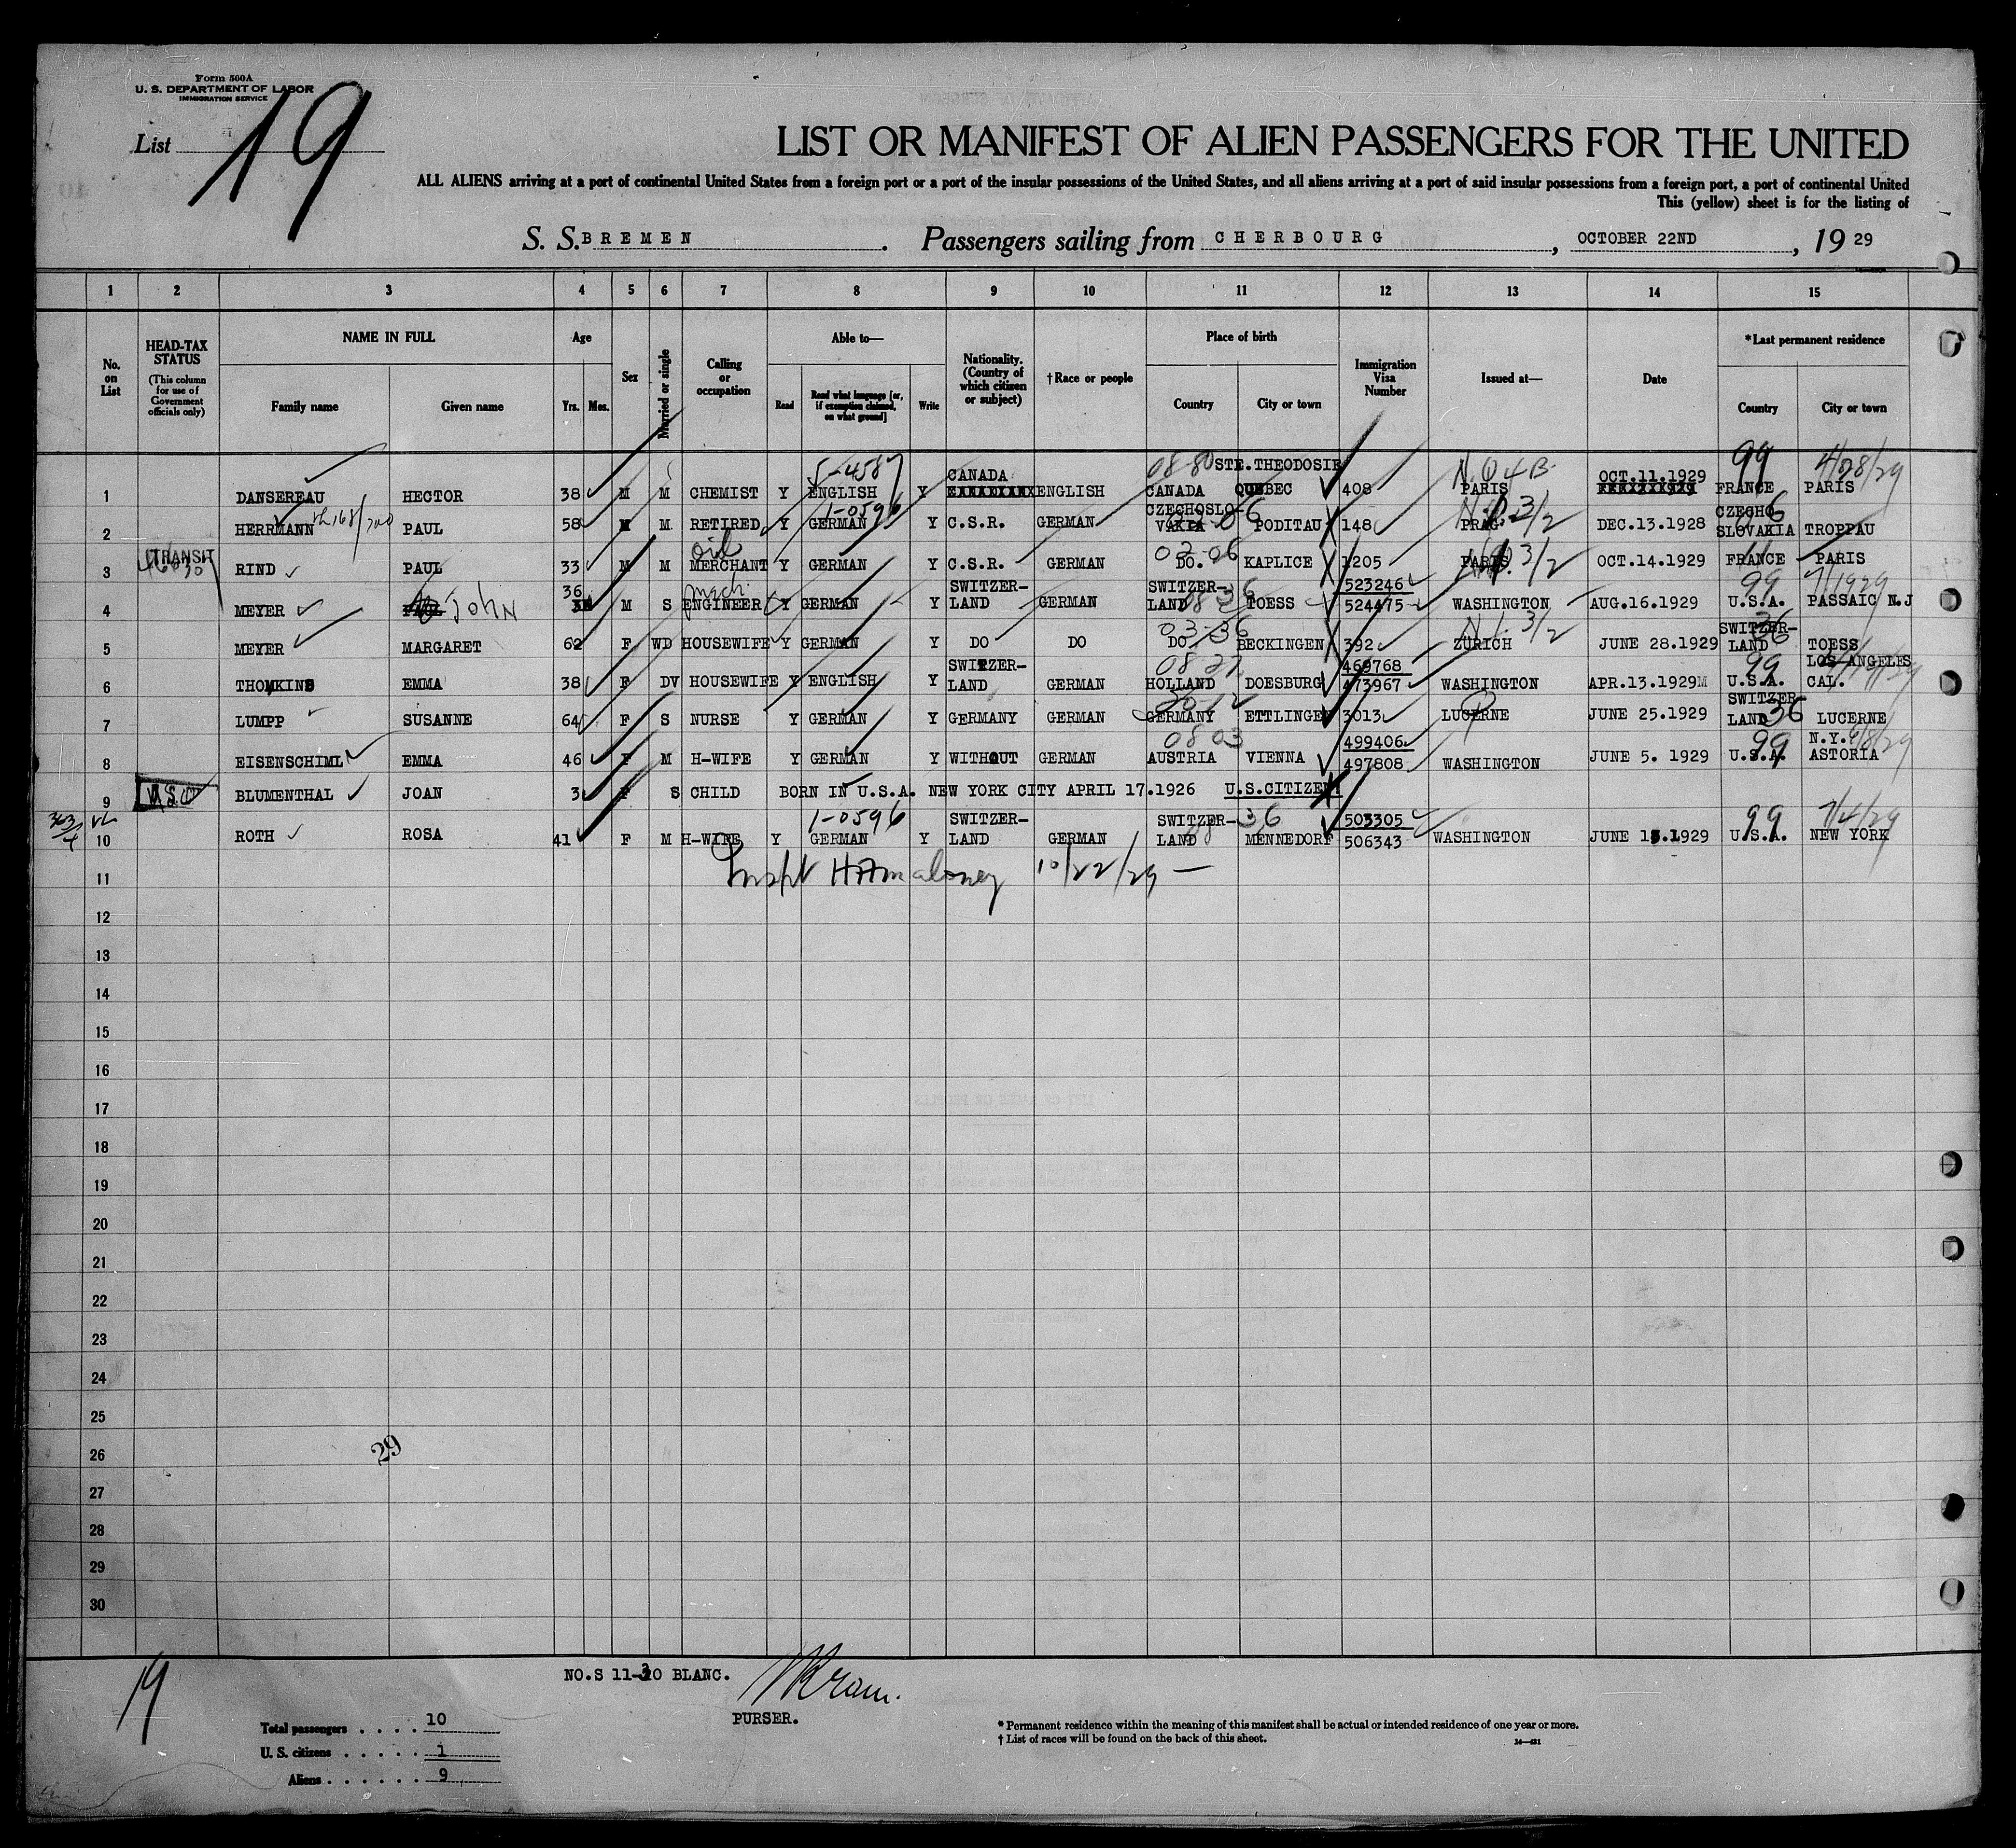 Form 500A
U. S. DEPARTMENT OF LABOR
IMMIGRATION SERVICE
List 19
LIST OR MANIFEST OF ALIEN PASSENGERS FOR THE UNITED
ALL ALIENS arriving at a port of continental United States from a foreign port or a port of the insular possessions of the United States, and all aliens arriving at a port of said insular possessions from a foreign port, a port of continental United
This (yellow) sheet is for the listing of
S. S. BREMEN. Passengers sailing from CHERBOURG, OCTOBER 22ND, 19 29
1 2 3 4 5 6 7 8 9 10 11 12 13 14 15
No. on List
HEAD-TAX STATUS
(This column for use of Government officials only)
NAME IN FULL
Family name Given name
Age
Yrs. Mos.
Sex
Married or single
Calling or occupation
Able to—
Read
Read what language [or, if exemption claimed, on what ground]
Write
Nationality. (Country of which citizen or subject)
† Race or people
Place of birth
Country City or town
Immigration Visa Number
Issued at—
Date
* Last permanent residence
Country City or town
5-4587 CANADA 08-80 STE.THEODOSIE N.O4B OCT.11.1929 99 4/28/29
1 DANSEREAU HECTOR 38 M M CHEMIST Y ENGLISH Y ENGLISH CANADA QUEBEC 408 PARIS FRANCE PARIS
1-0596 CZECHOSLO- CZECHO
2 HERRMANN PAUL 58 M M RETIRED Y GERMAN Y C.S.R. GERMAN VAKIA PODITAU 148 PRAG. 3/2 DEC.13.1928 SLOVAKIA TROPPAU
TRANSIT oil 02-06
3 RIND PAUL 33 M M MERCHANT Y GERMAN Y C.S.R. GERMAN DO. KAPLICE 1205 PARIS 3/2 OCT.14.1929 FRANCE PARIS
36 mech SWITZER- SWITZER- 36 523246 99 7/1929
4 MEYER John M S ENGINEER Y GERMAN Y LAND GERMAN LAND TOESS 524475 WASHINGTON AUG.16.1929 U.S.A. PASSAIC N.J
03-36 3/2 SWITZER-
5 MEYER MARGARET 62 F WD HOUSEWIFE Y GERMAN Y DO DO DO BECKINGEN 392 ZURICH JUNE 28.1929 LAND 36 TOESS
SWITZER- 08 27 469768 99 LOS ANGELES
6 THOMKINS EMMA 38 F DV HOUSEWIFE Y ENGLISH Y LAND GERMAN HOLLAND DOESBURG 473967 WASHINGTON APR.13.1929 U.S.A. CAL.
SWITZER-
7 LUMPP SUSANNE 64 F S NURSE Y GERMAN Y GERMANY GERMAN GERMANY ETTLINGEN 3013 LUCERNE JUNE 25.1929 LAND 36 LUCERNE
08 03 499406 99 N.Y. 6/8/29
8 EISENSCHIML EMMA 46 F M H-WIFE Y GERMAN Y WITHOUT GERMAN AUSTRIA VIENNA 497808 WASHINGTON JUNE 5. 1929 U.S.A. ASTORIA
9 USC BLUMENTHAL JOAN 3 F S CHILD BORN IN U.S.A. NEW YORK CITY APRIL 17.1926 U.S.CITIZEN
1-0596 SWITZER- SWITZER- 36 503305 99 7/4/29
10 ROTH ROSA 41 F M H-WIFE Y GERMAN Y LAND GERMAN LAND MENNEDORF 506343 WASHINGTON U.S.A. NEW YORK
11 Inspt HAMaloney 10/22/29 —
12
13
14
15
16
17
18
19
20
21
22
23
24
25
26 29
27
28
29
30
19 NO.S 11-30 BLANC.
PURSER.
Total passengers . . . . 10
U. S. citizens . . . . . 1
Aliens . . . . . . 9
* Permanent residence within the meaning of this manifest shall be actual or intended residence of one year or more.
† List of races will be found on the back of this sheet.